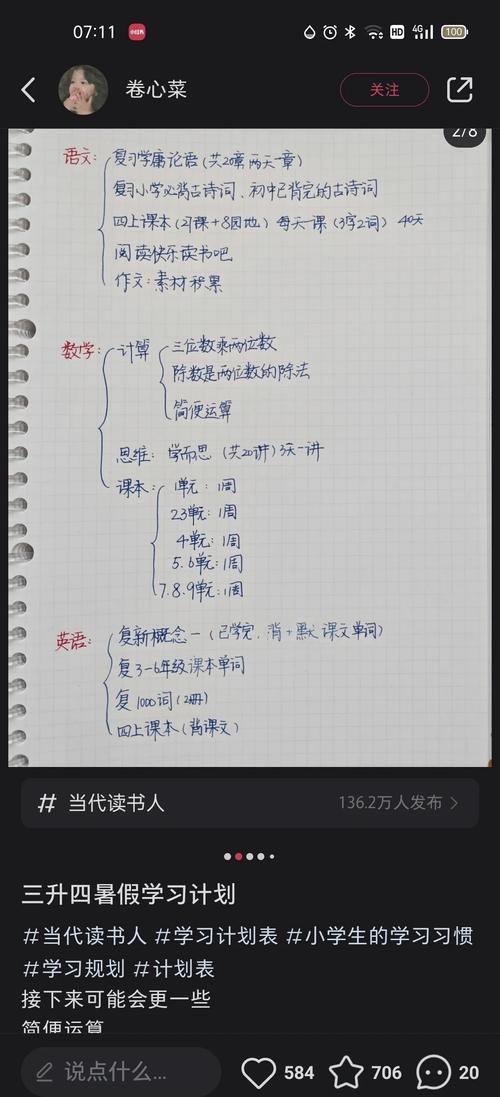 07:11 小红书 HD 4G 100
卷心菜 关注
2/8
语文: 复习学庸论语(共20章两天一章)
复习小学必背古诗词、初中已背完的古诗词
四上课本(27课+8园地) 每天一课(3字2词) 40天
阅读快乐读书吧
作文:素材积累
数学: 计算 三位数乘两位数
除数是两位数的除法
简便运算
思维: 学而思 (共20讲) 3天一讲
课本: 1单元: 1周
2.3单元: 1周
4单元: 1周
5.6单元: 1周
7.8.9单元: 1周
英语: 复新概念一(已学完, 背+默 课文单词)
复3-6年级课本单词
复1000词(2册)
四上课本(背课文)
# 当代读书人 136.2万人发布 >
三升四暑假学习计划
#当代读书人 #学习计划表 #小学生的学习习惯
#学习规划 #计划表
接下来可能会更一些
简便运算
说点什么... 584 706 20